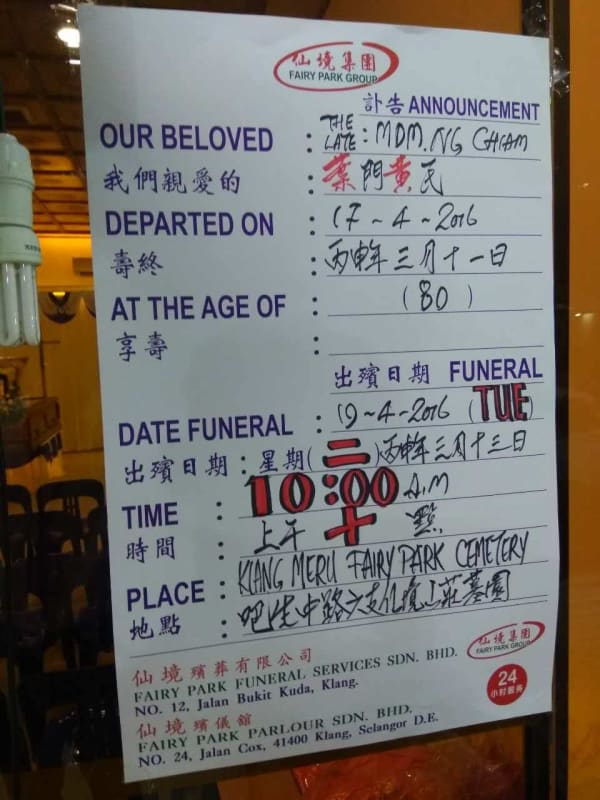 仙境集團
FAIRY PARK GROUP
訃告 ANNOUNCEMENT
OUR BELOVED : THE LATE: MDM. NG CHIAM
我們親愛的 : 葉門黄氏
DEPARTED ON : 17-4-2016
壽終 : 丙申年三月十一日
AT THE AGE OF : (80)
享壽 :
出殯日期 FUNERAL
DATE FUNERAL : 19-4-2016 (TUE)
出殯日期 : 星期(二)丙申年三月十三日
TIME : 10:00 A.M
時間 : 上午 十 點
PLACE : KLANG MERU FAIRY PARK CEMETERY
地點 : 吧生中路六支 山莊墓園
仙境殯葬有限公司
FAIRY PARK FUNERAL SERVICES SDN. BHD.
NO. 12, Jalan Bukit Kuda, Klang.
仙境殯儀館
FAIRY PARK PARLOUR SDN. BHD.
NO. 24, Jalan Cox, 41400 Klang, Selangor D.E.
仙境集團
FAIRY PARK GROUP
24
小时服务